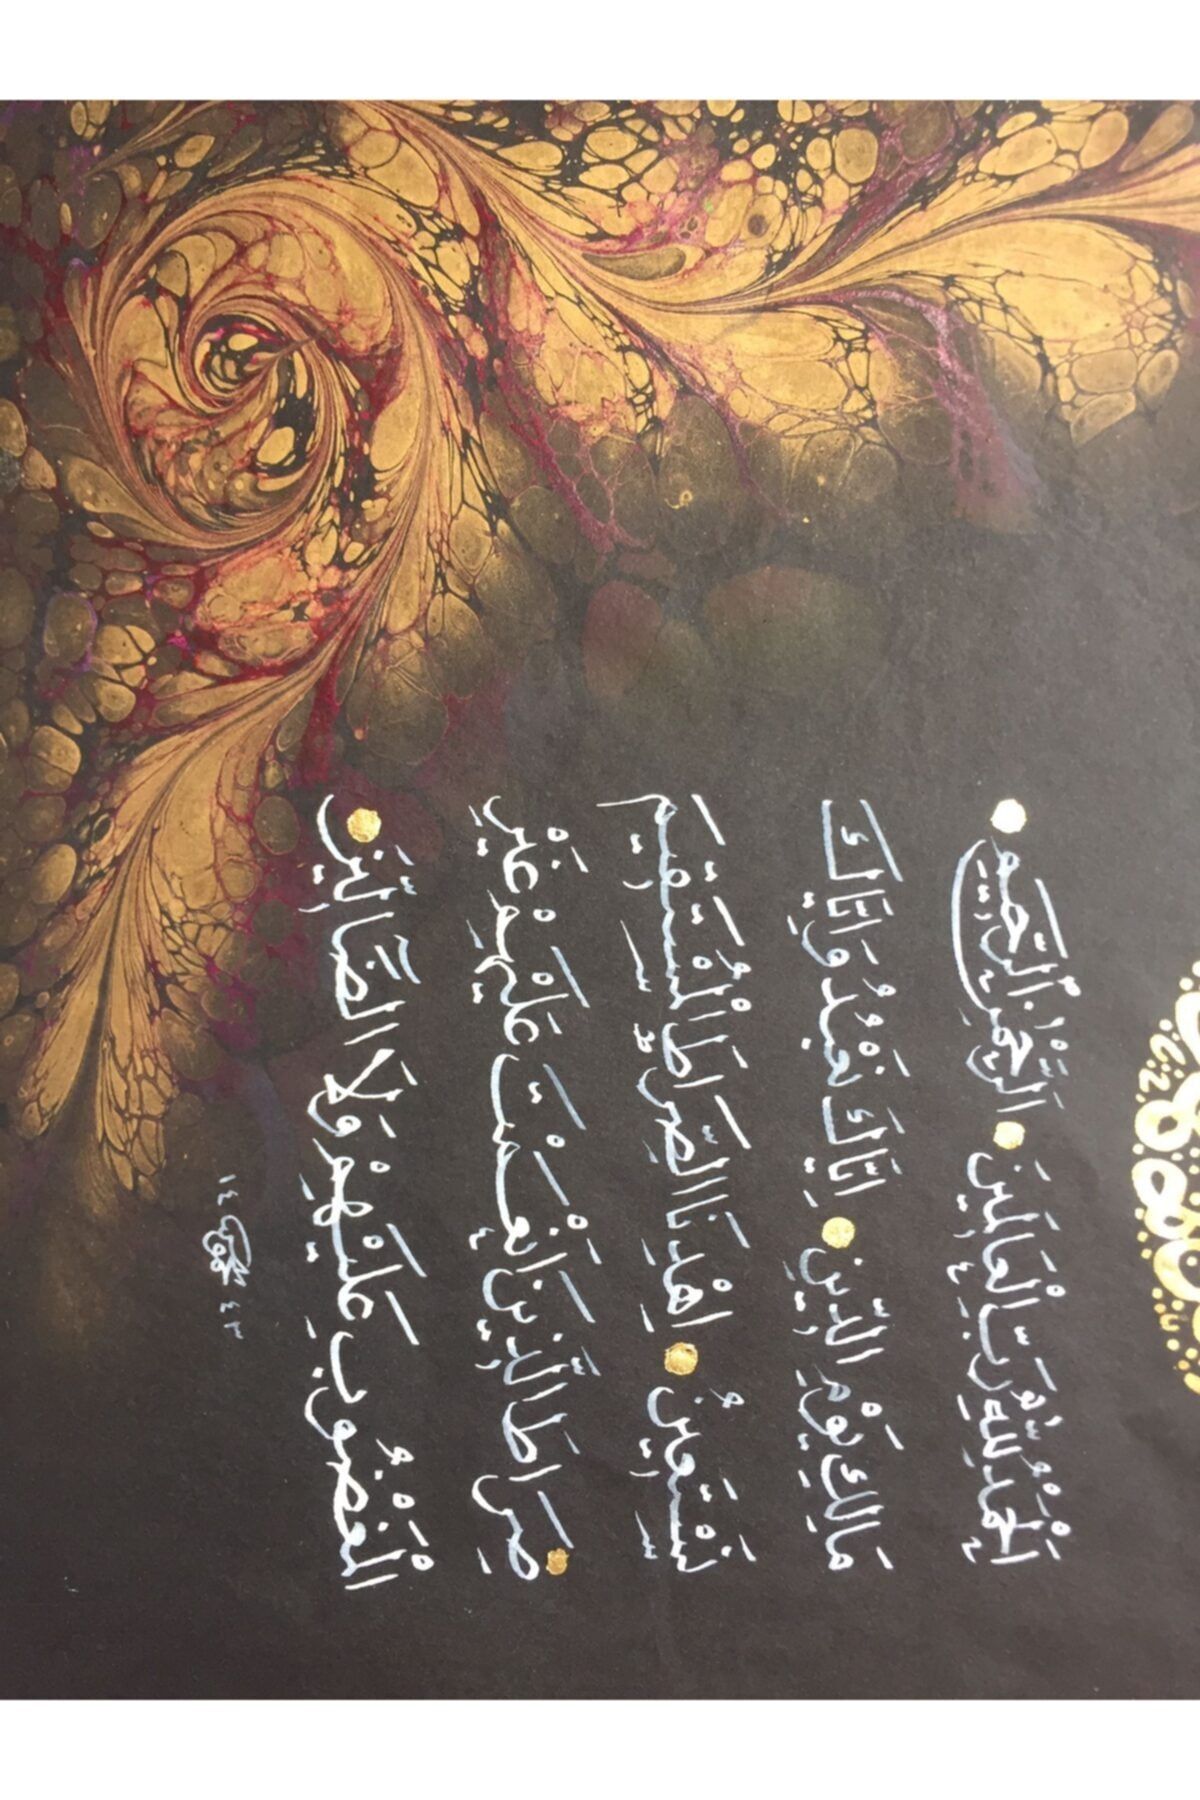 اَلْحَمْدُ لِلّٰهِ رَبِّ الْعَالَمِينَ اَلرَّحْمٰنِ الرَّحِيمِ
مَالِكِ يَوْمِ الدِّينِ اِيَّاكَ نَعْبُدُ وَاِيَّاكَ
نَسْتَعِينُ اِهْدِنَا الصِّرَاطَ الْمُسْتَقِيمَ
صِرَاطَ الَّذِينَ اَنْعَمْتَ عَلَيْهِمْ غَيْرِ
الْمَغْضُوبِ عَلَيْهِمْ وَلَا الضَّالِّينَ